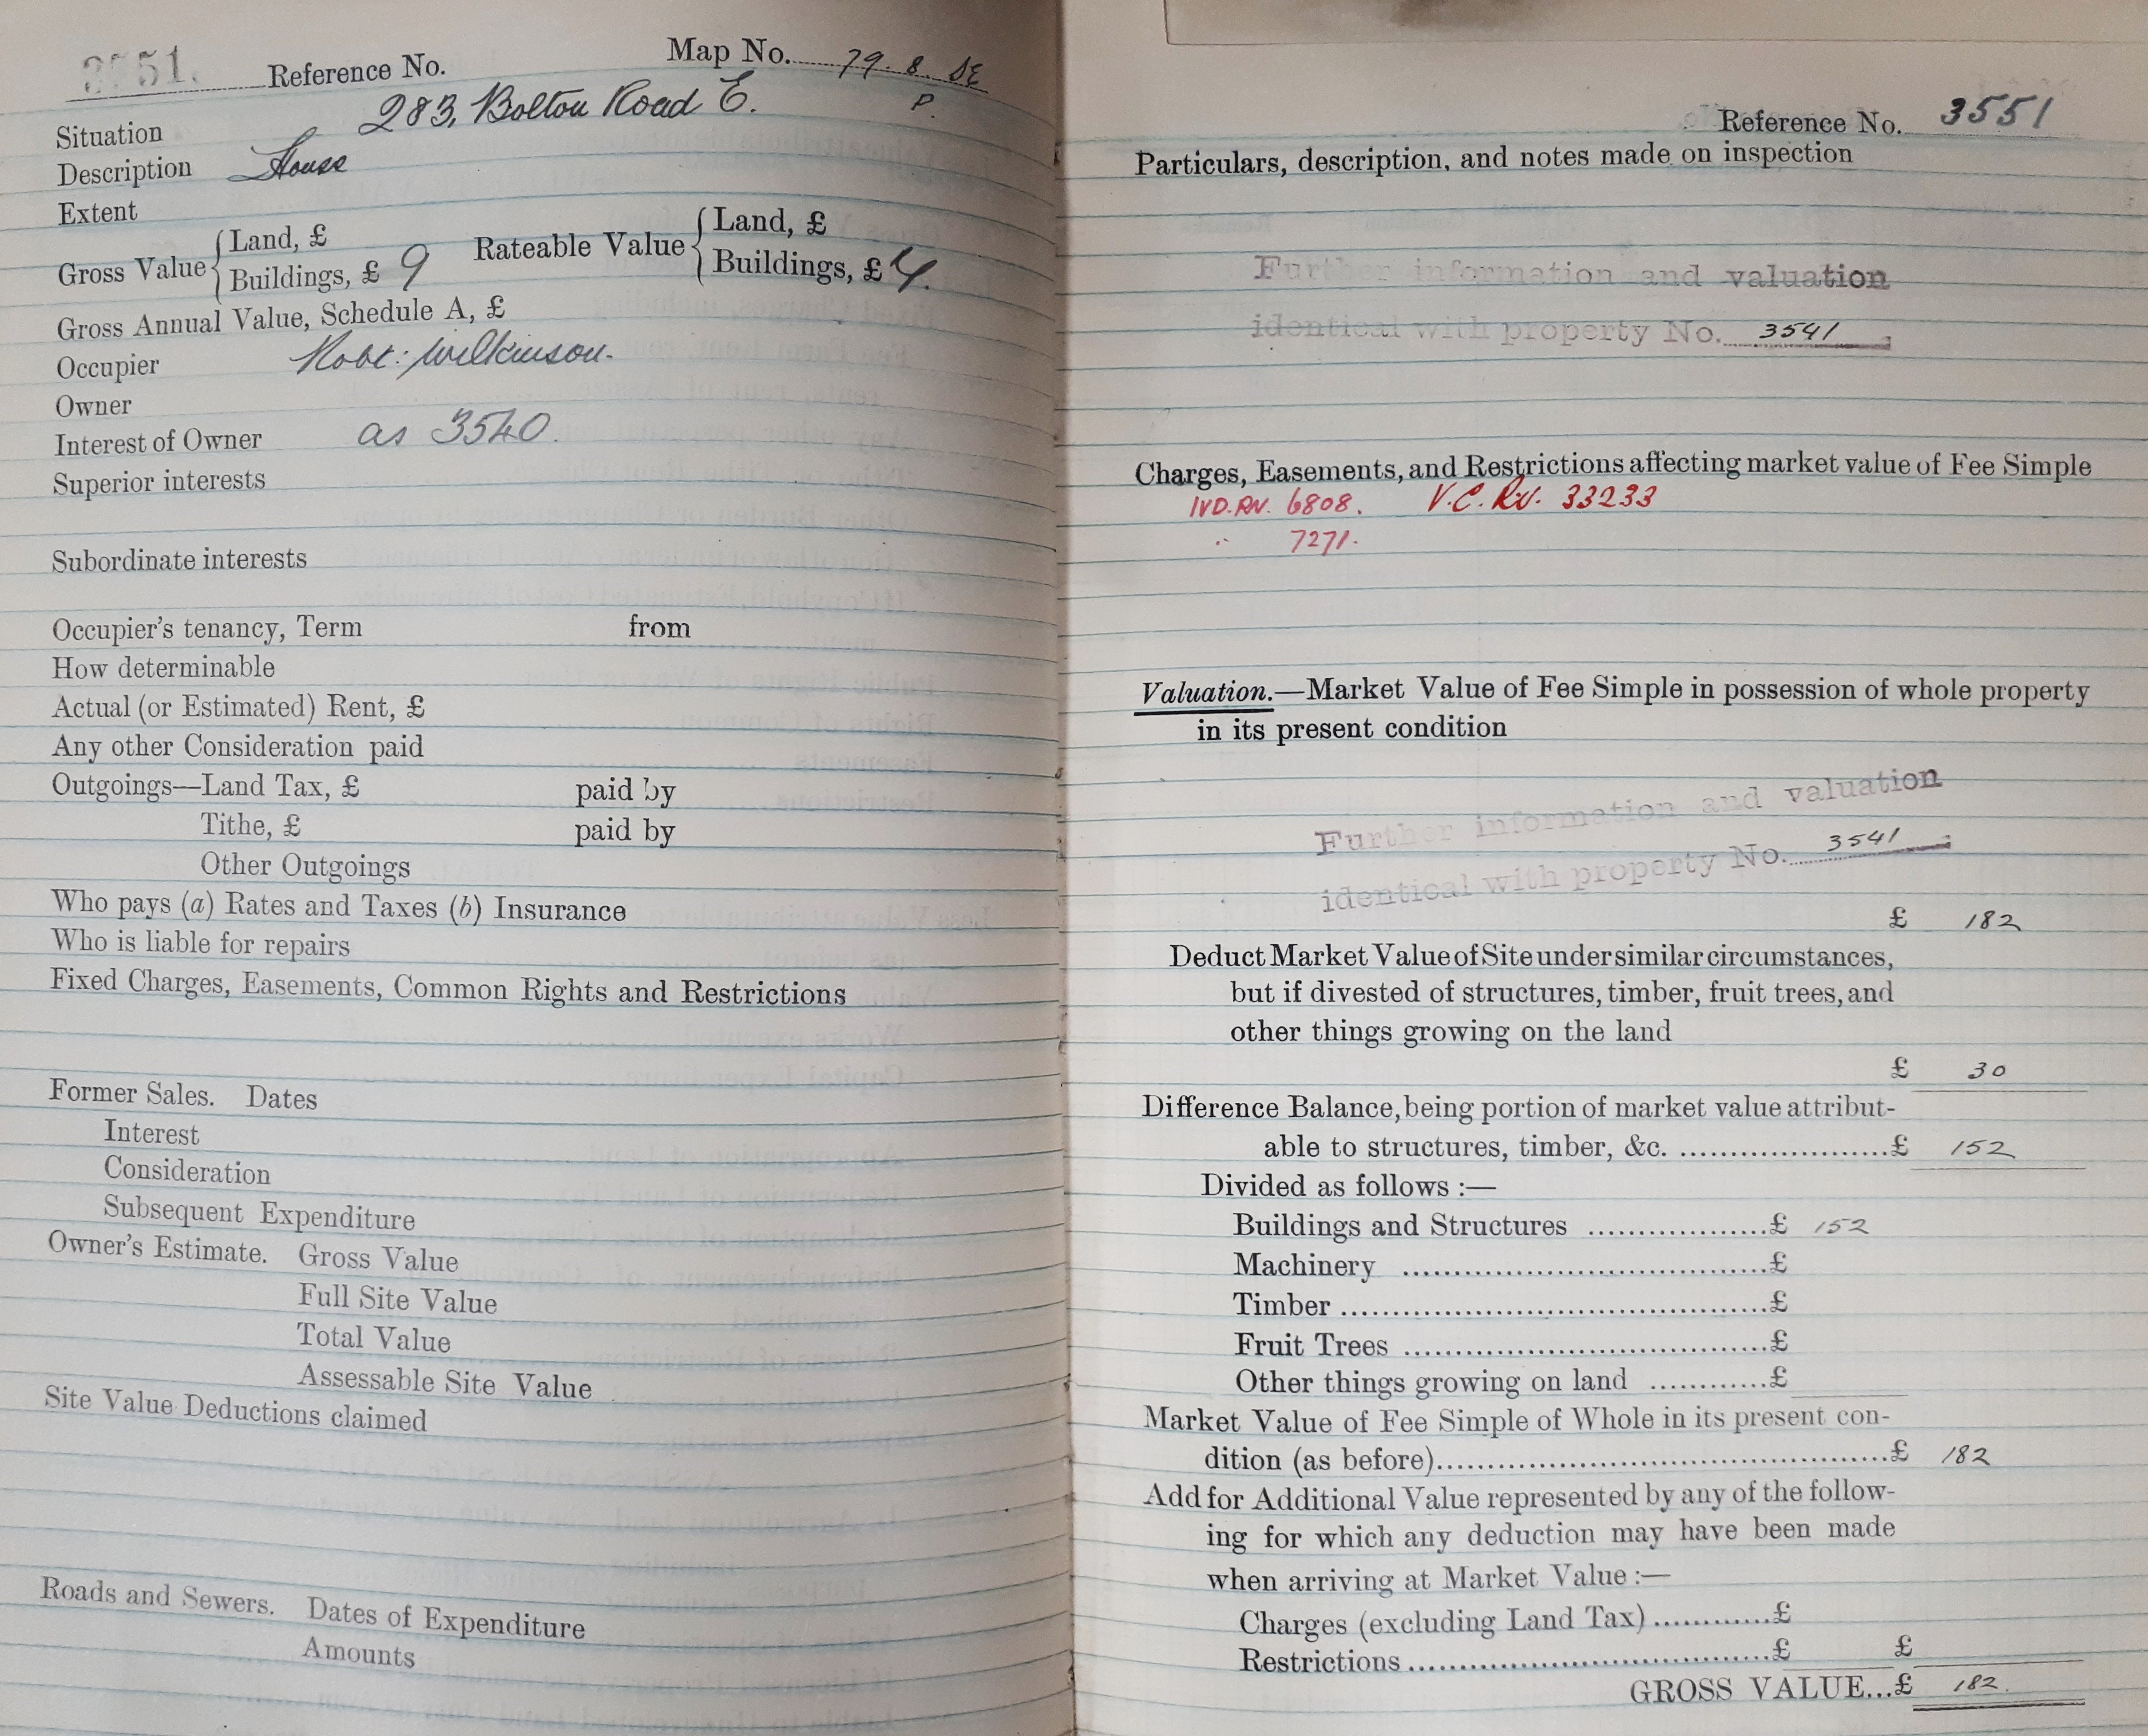 3551. Reference No. Map No. 79. 8. SE
P.
Situation 283, Bolton Road E.
Description House
Extent
Gross Value { Land, £ Rateable Value { Land, £
Buildings, £ 9 Buildings, £
Gross Annual Value, Schedule A, £
Occupier Robt: Wilkinson.
Owner
Interest of Owner as 3540.
Superior interests
Subordinate interests
Occupier's tenancy, Term from
How determinable
Actual (or Estimated) Rent, £
Any other Consideration paid
Outgoings—Land Tax, £ paid by
Tithe, £ paid by
Other Outgoings
Who pays (a) Rates and Taxes (b) Insurance
Who is liable for repairs
Fixed Charges, Easements, Common Rights and Restrictions
Former Sales. Dates
Interest
Consideration
Subsequent Expenditure
Owner's Estimate. Gross Value
Full Site Value
Total Value
Assessable Site Value
Site Value Deductions claimed
Roads and Sewers. Dates of Expenditure
Amounts
Reference No. 3551
Particulars, description, and notes made on inspection
Further information and valuation
identical with property No. 3541
Charges, Easements, and Restrictions affecting market value of Fee Simple
IVD.RN. 6808. V.C. Rv. 33233
" 7271.
Valuation.—Market Value of Fee Simple in possession of whole property
in its present condition
Further information and valuation
identical with property No. 3541
£ 182
Deduct Market Value of Site under similar circumstances,
but if divested of structures, timber, fruit trees, and
other things growing on the land
£ 30
Difference Balance, being portion of market value attribut-
able to structures, timber, &c. ....................£ 152
Divided as follows :—
Buildings and Structures .................£ 152
Machinery ..................................£
Timber ........................................£
Fruit Trees ..................................£
Other things growing on land ...........£
Market Value of Fee Simple of Whole in its present con-
dition (as before)..........................................£ 182
Add for Additional Value represented by any of the follow-
ing for which any deduction may have been made
when arriving at Market Value :—
Charges (excluding Land Tax) ...........£
Restrictions ....................................£ £
GROSS VALUE...£ 182.